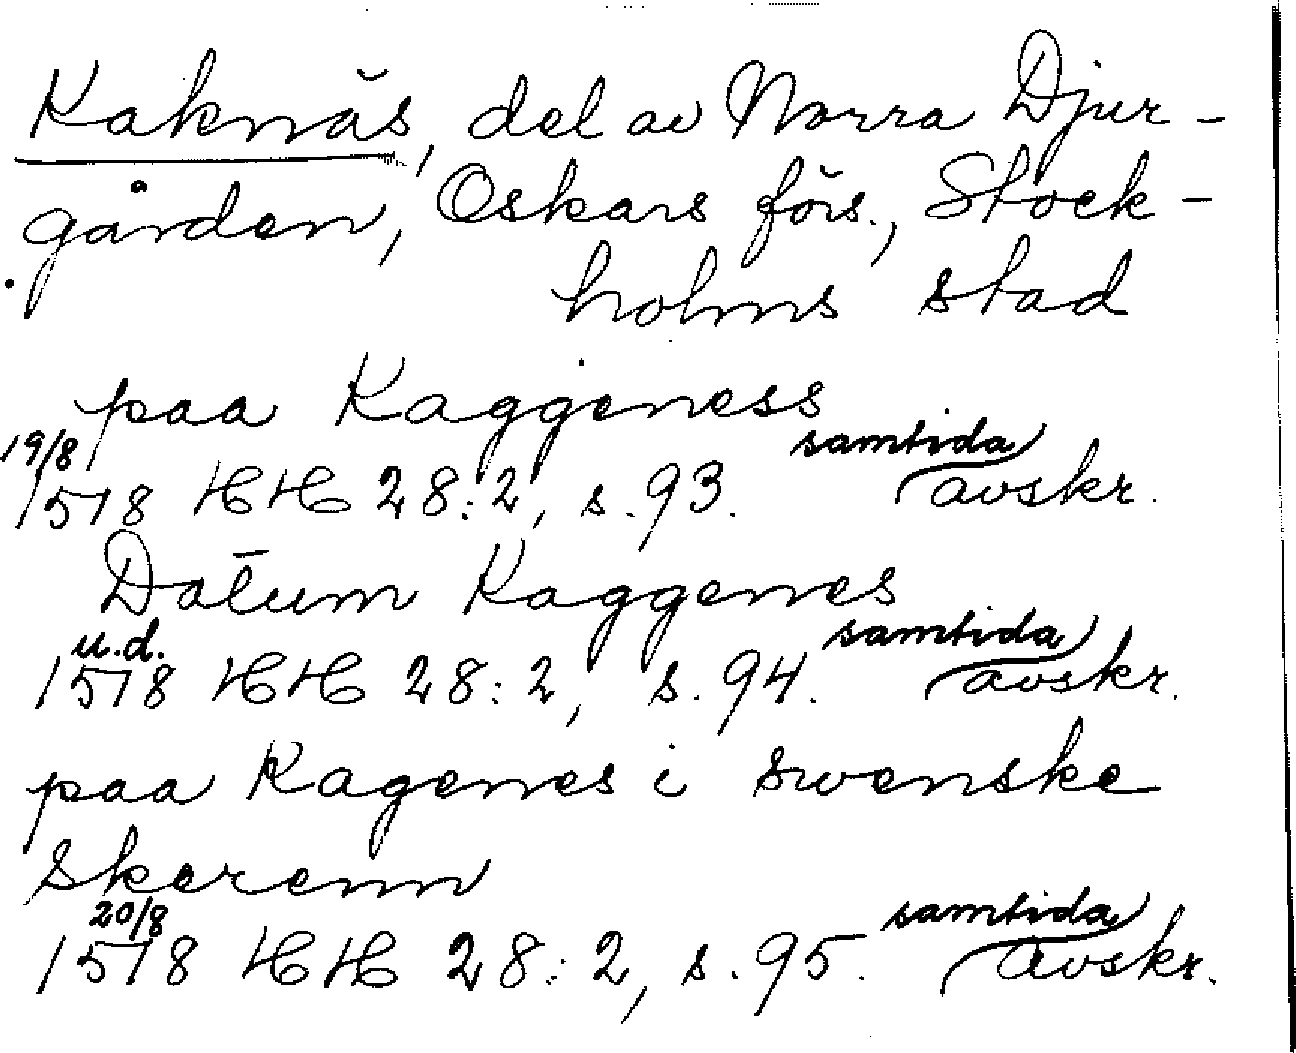 Kaknäs, del av Norra Djur-
gården, Oskars förs., Stock-
holms stad
paa Kaggeness
19/8 samtida
1578 HH 28:2, s. 93. avskr.
Datum Kaggenes
u.d. samtida
1578 HH 28:2, s. 94. avskr.
paa Kagenes i swenske
skerenn
20/8 samtida
1578 HH 28:2, s. 95. avskr.